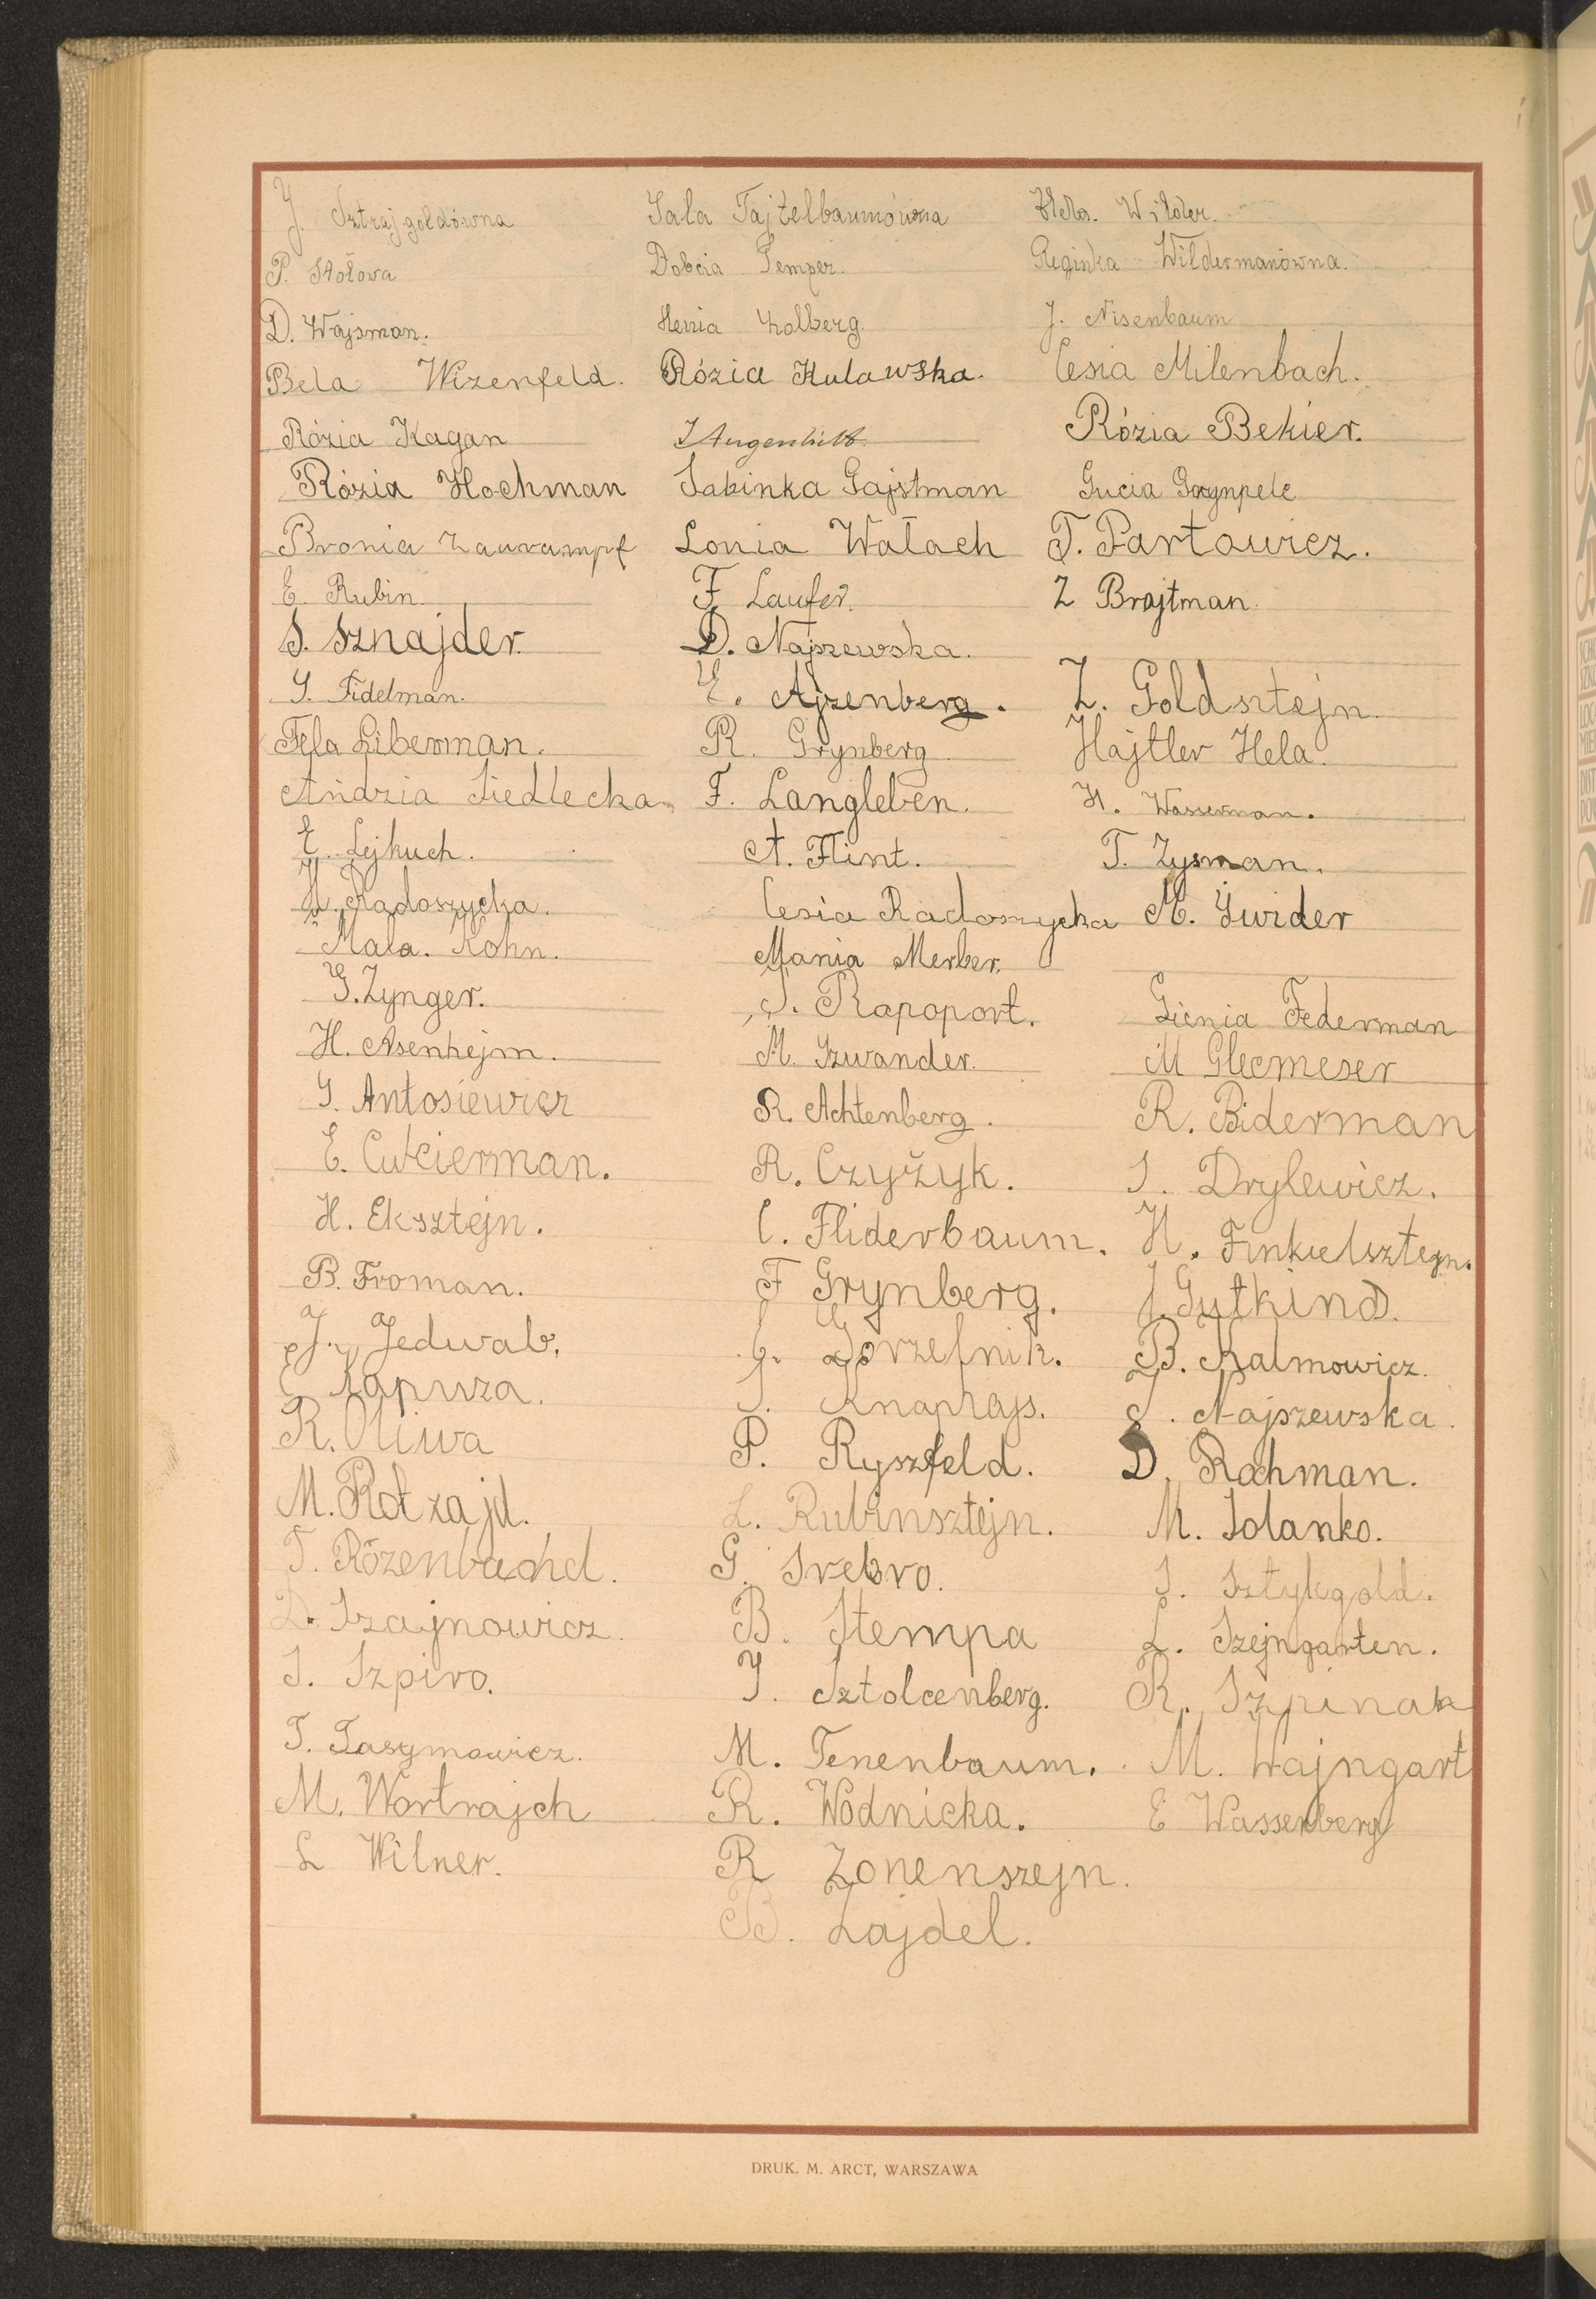 J. Sztrajgoldówna Sala Tajtelbaumówna Hela. Wilder.
P. Stołowa Dobcia Temper. Reginka Wildermanówna.
D. Wajsman. Henia Kolberg. J. Nisenbaum
Bela Wizenfeld. Rózia Kulawska. Cesia Milenbach.
Rózia Kagan Rózia Bekier.
Rózia Hochman Sabinka Gajstman Gucia Grynpelc
Bronia Lonia Wałach T. Partowicz.
E. Rubin. F. Laufer. Z Brajtman.
S. Sznajder. D. Najszewska.
Y. Fidelman. E. Ajzenberg. Z. Goldsztejn.
Fela Liberman. R. Grynberg Hajtler Hela.
Andzia Siedlecka. F. Langleben. H. Wasserman.
E. Lejkuch. A. Flint. T. Zysman.
H. Radoszycka. Cesia Radoszycka M. Świder
Mala. Kohn. Mania Merber.
G. Zynger. S. Rapoport. Gienia Federman
H. Asenhejm. M. Szwander. M Glecmeser
G. Antosiewicz R. Achtenberg. R. Biderman
E. Cukierman. R. Czyżyk. S. Drylewicz.
H. Eksztejn. C. Fliderbaum. H. Finkielsztejn.
B. Froman. F Grynberg. J. Gutkind.
J. Jedwab. G. Gorzelnik. B. Kalmowicz.
C. Łapusza. S. Knaprajs. S. Najszewska.
R. Oliwa P. Ryszfeld. D. Rochman.
M. Rotzajd. L. Rubinsztejn. M. Solanko.
T. Rózenbachd. G. Srebro. S. Sztykgold.
D. Szajnowicz. B. Stempa L. Szejngarten.
S. Szpiro. J. Sztolcenberg. R. Szpinak
T. Tasymowicz. M. Tenenbaum. M. Wajngart
M. Wortrajch R. Wodnicka. E Wassenberg
L Wilner. R Zonenszejn.
B. Zajdel.
DRUK. M. ARCT, WARSZAWA